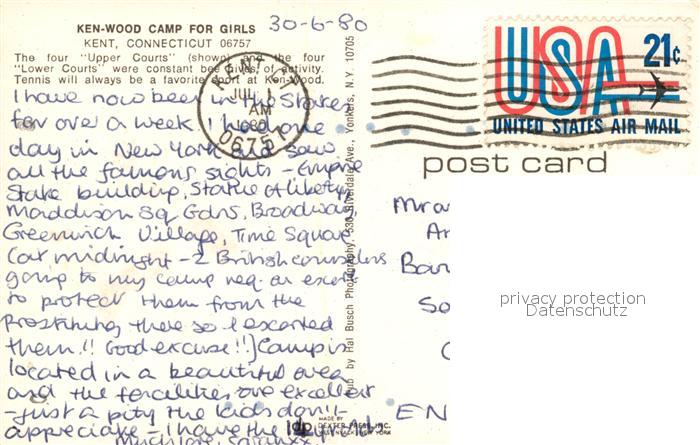 KEN-WOOD CAMP FOR GIRLS
KENT, CONNECTICUT 06757
30-6-80
The four "Upper Courts" (shown) and the four
"Lower Courts" were constant bee hives of activity.
Tennis will always be a favorite sport at Ken-Wood.
KENT CT
JUL 1
AM
1980
06757
USA 21¢
UNITED STATES AIR MAIL
post card
I have now been in the States
for over a week. I had one
day in New York and saw
all the famous sights - Empire
State building, Statue of liberty,
Maddison Sq Gdns, Broadway,
Greenwich Village, Time Square
(at midnight - 2 British counsellors
going to my camp req. an escort
to protect them from the
there so I escorted
them!! Good excuse!!) Camp is
located in a beautiful area
and the facilities are excellent
- just a pity the kids don't
appreciate - I have the
Much love,
Pub by Hal Busch Photography, 530 Silverdale Ave., Yonkers, N.Y. 10705
ldp
MADE BY
DEXTER PRESS, INC.
WEST NYACK, NEW YORK
Mr a
Ar
Bar
So
C
EN
privacy protection
Datenschutz